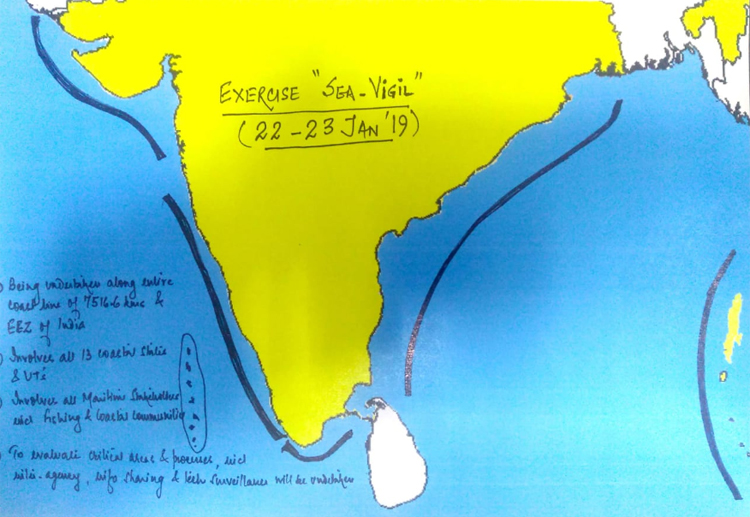 EXERCISE "SEA-VIGIL"
(22-23 JAN'19)
Being undertaken along entire
coast line of 7516.6 kms &
EEZ of India
Involves all 13 coastal states
& UTs
Involves all Maritime Stakeholders
incl fishing & coastal communities
To evaluate critical areas & processes, incl
inter-agency, info sharing & tech surveillance will be undertaken